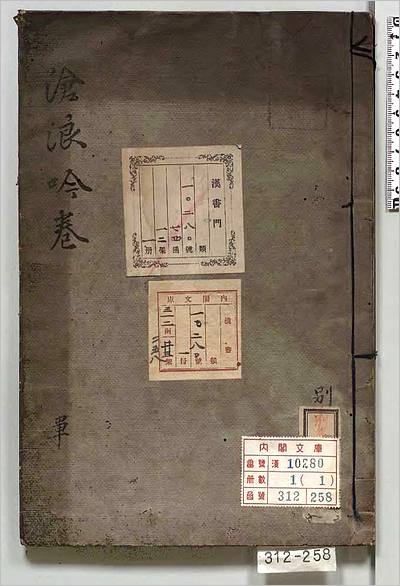 滄浪吟卷
單
別
漢書門
類
號
函
架
冊
一〇二八〇
一二
內閣文庫
漢書
一〇二八〇
內閣文庫
番號 漢 10280
冊數 1 ( 1 )
函號 312 258
312-258